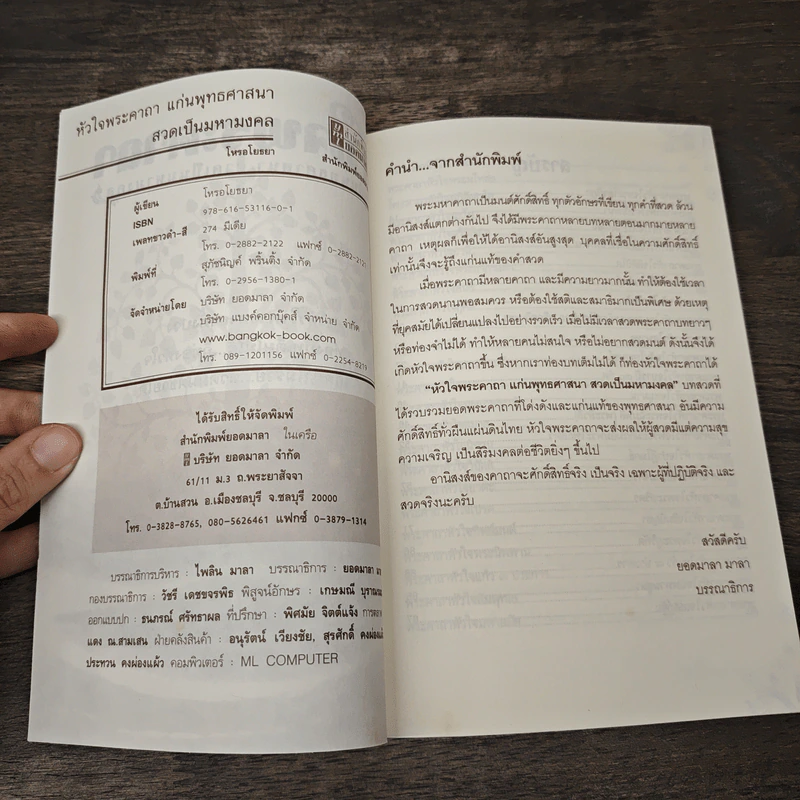 หัวใจพระคาถา แก่นพุทธศาสนา
สวดเป็นมหามงคล
โหรอโยธยา
สำนักพิมพ์
ผู้เขียน โหรอโยธยา
ISBN 978-616-53116-0-1
เพลทขาวดำ-สี 274 มีเดีย
โทร. 0-2882-2122 แฟกซ์ 0-2882-2120
พิมพ์ที่ สุภัชนิญค์ พริ้นติ้ง จำกัด
โทร. 0-2956-1380-1
จัดจำหน่ายโดย บริษัท ยอดมาลา จำกัด
บริษัท แบงค์คอกบุ๊คส์ จำหน่าย จำกัด
www.bangkok-book.com
โทร. 089-1201156 แฟกซ์ 0-2254-8219
ได้รับสิทธิ์ให้จัดพิมพ์
สำนักพิมพ์ยอดมาลา ในเครือ
บริษัท ยอดมาลา จำกัด
61/11 ม.3 ถ.พระยาสัจจา
ต.บ้านสวน อ.เมืองชลบุรี จ.ชลบุรี 20000
โทร. 0-3828-8765, 080-5626461 แฟกซ์ 0-3879-1314
บรรณาธิการบริหาร : ไพลิน มาลา บรรณาธิการ : ยอดมาลา
กองบรรณาธิการ : วัชรี เดชขจรพัธ พิสูจน์อักษร : เกษมณี
ออกแบบปก : ธนภรณ์ ศรัทธาผล ที่ปรึกษา : พิศมัย จิตต์แจ้ง
แดง ณ.สามเสน ฝ่ายคลังสินค้า : อนุรัตน์ เวียงชัย, สุรศักดิ์ คงผ่องแผ้ว
ประทวน คงผ่องแผ้ว คอมพิวเตอร์ : ML COMPUTER
คำนำ...จากสำนักพิมพ์
พระมหาคาถาเป็นมนต์ศักดิ์สิทธิ์ ทุกตัวอักษรที่เขียน ทุกคำที่สวด ล้วน
มีอานิสงส์แตกต่างกันไป จึงได้มีพระคาถาหลายบทหลายตอนมากมายหลาย
คาถา เหตุผลก็เพื่อให้ได้อานิสงส์อันสูงสุด บุคคลที่เชื่อในความศักดิ์สิทธิ์
เท่านั้นจึงจะรู้ถึงแก่นแท้ของคำสวด
เมื่อพระคาถามีหลายคาถา และมีความยาวมากนั้น ทำให้ต้องใช้เวลา
ในการสวดนานพอสมควร หรือต้องใช้สติและสมาธิมากเป็นพิเศษ ด้วยเหตุ
ที่ยุคสมัยได้เปลี่ยนแปลงไปอย่างรวดเร็ว เมื่อไม่มีเวลาสวดพระคาถาบทยาวๆ
หรือท่องจำไม่ได้ ทำให้หลายคนไม่สนใจ หรือไม่อยากสวดมนต์ ดังนั้นจึงได้
เกิดหัวใจพระคาถาขึ้น ซึ่งหากเราท่องบทเต็มไม่ได้ ก็ท่องหัวใจพระคาถาได้
“หัวใจพระคาถา แก่นพุทธศาสนา สวดเป็นมหามงคล” บทสวดที่
ได้รวบรวมยอดพระคาถาที่โด่งดังและแก่นแท้ของพุทธศาสนา อันมีความ
ศักดิ์สิทธิ์ทั่วผืนแผ่นดินไทย หัวใจพระคาถาจะส่งผลให้ผู้สวดมีแต่ความสุข
ความเจริญ เป็นสิริมงคลต่อชีวิตยิ่งๆ ขึ้นไป
อานิสงส์ของคาถาจะศักดิ์สิทธิ์จริง เป็นจริง เฉพาะผู้ที่ปฏิบัติจริง และ
สวดจริงนะครับ
สวัสดีครับ
ยอดมาลา มาลา
บรรณาธิการ